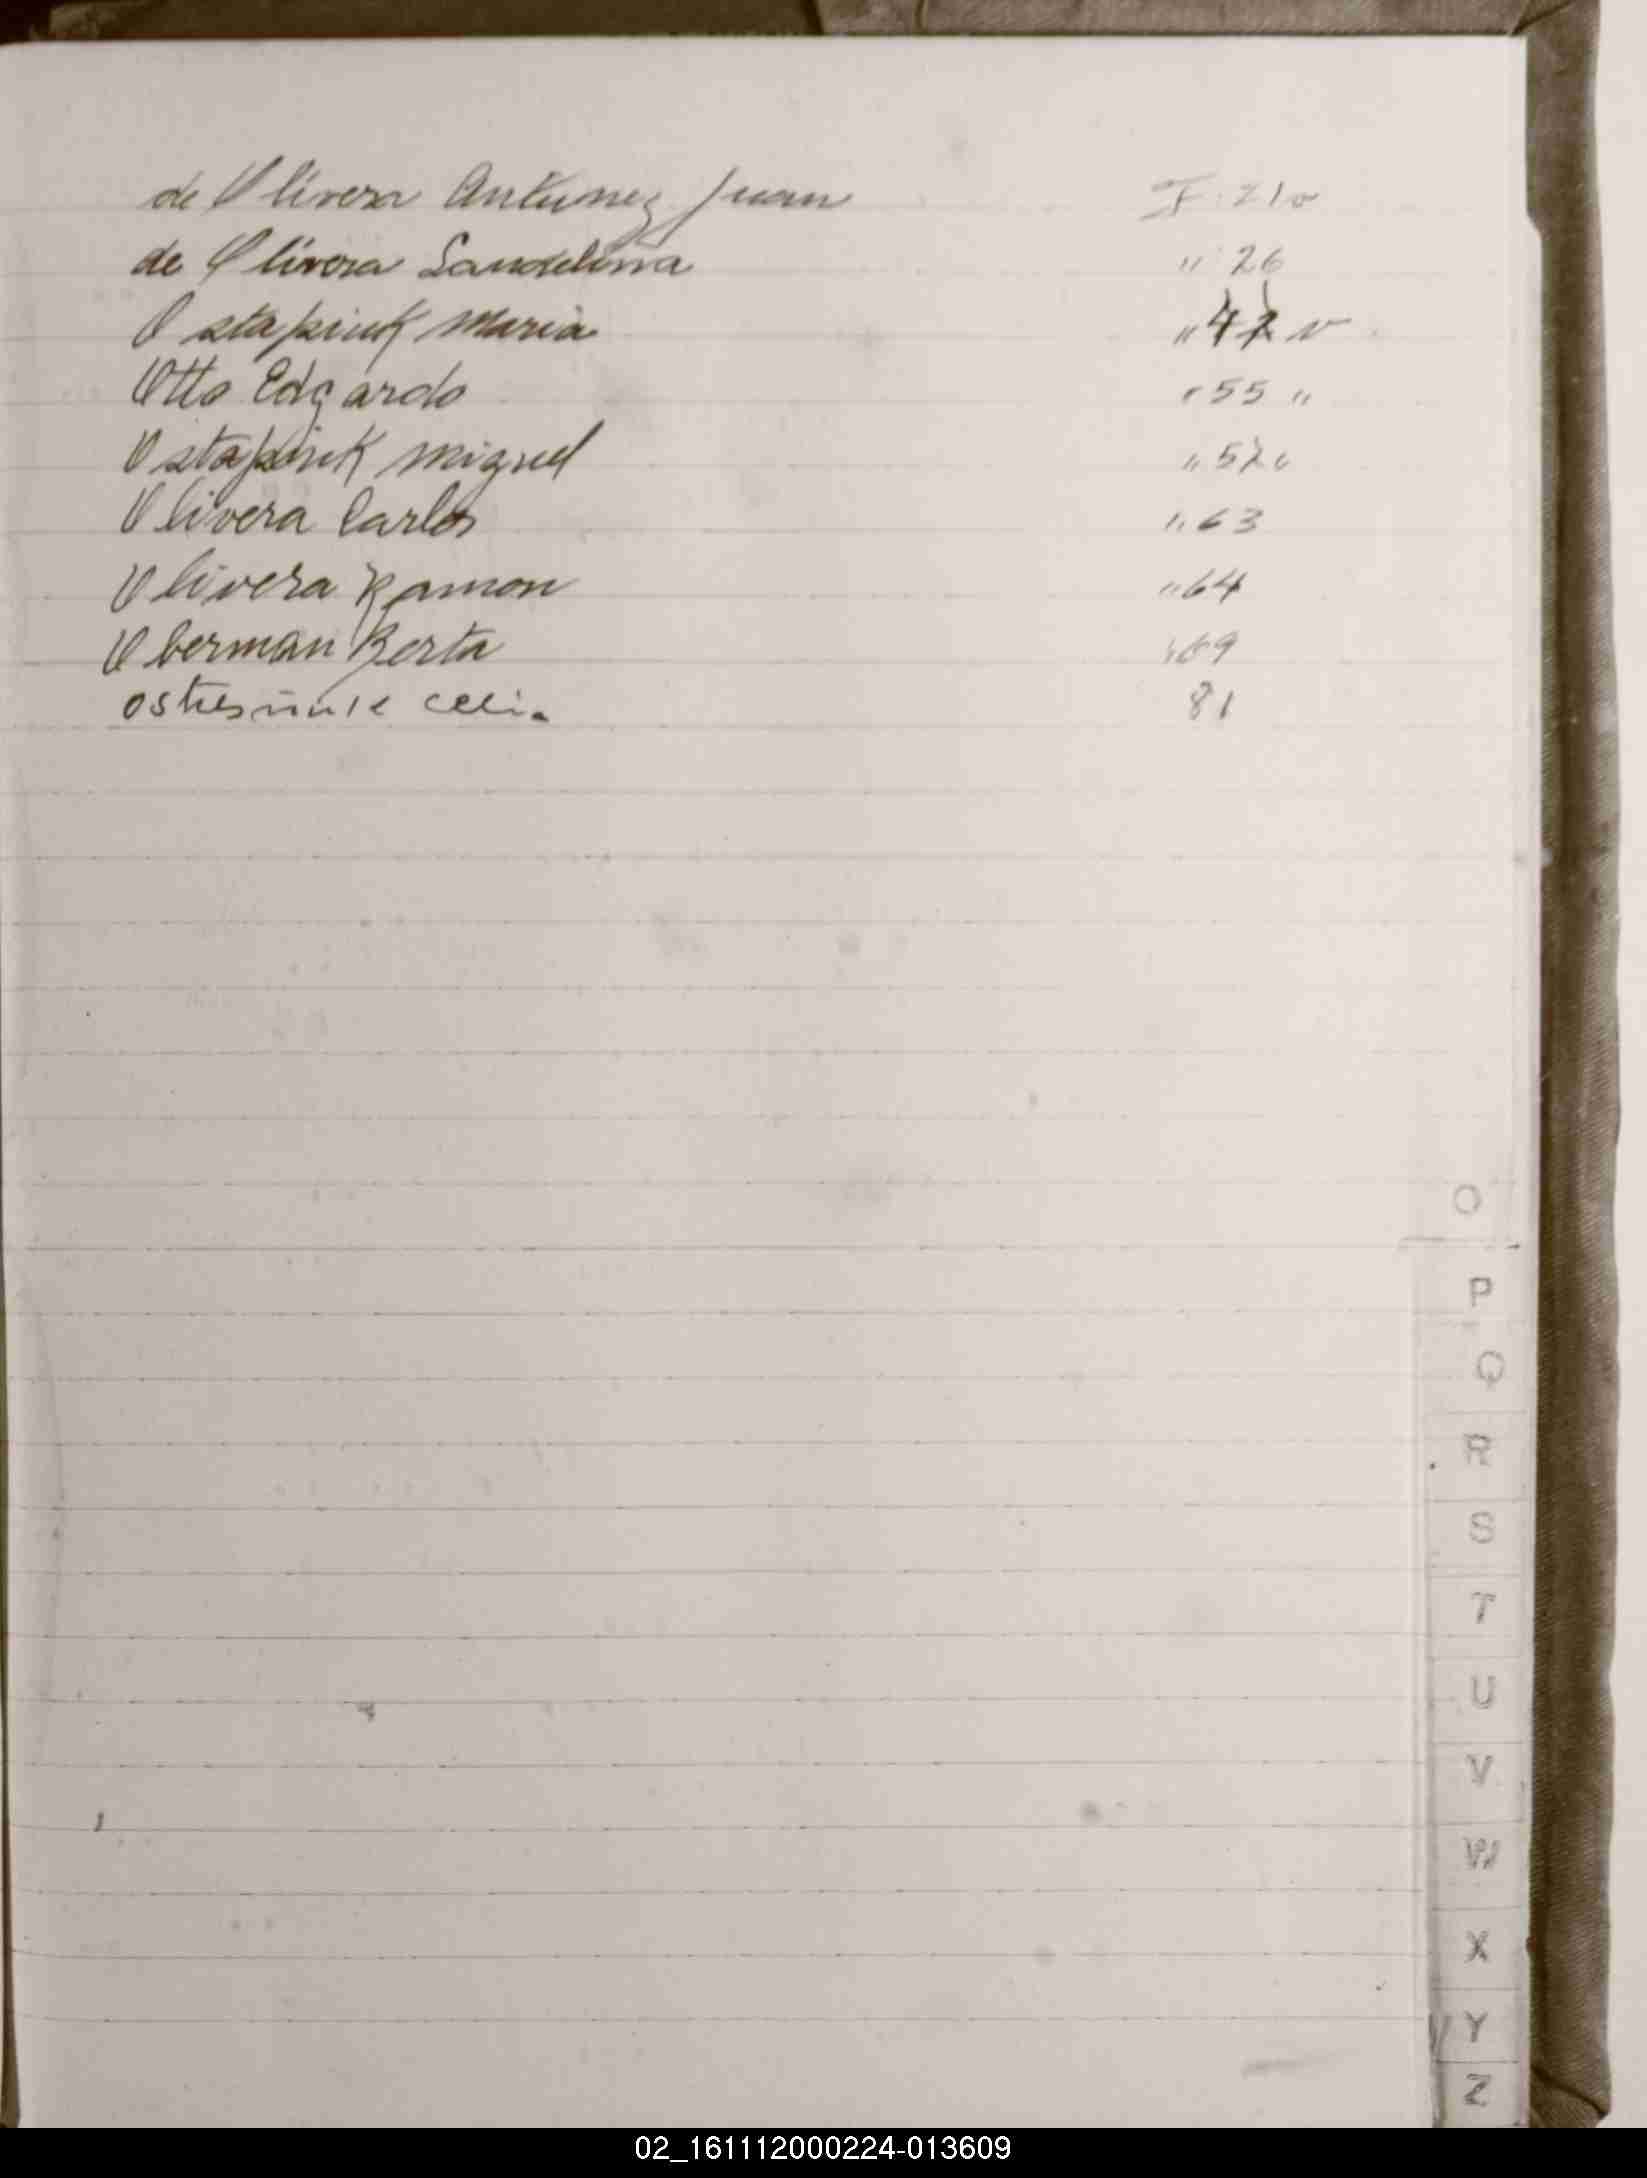 de Olivera Antunez Juan F. 21 v
de Olivera Sandelina " 26
Ostapiuk Maria " 47 v
Otto Edgardo " 55 "
Ostapiuk Miguel " 57 "
Olivera Carlos " 63
Olivera Ramon " 64
Oberman Berta " 69
Celia 81
O
P
Q
R
S
T
U
V
W
X
Y
Z
02_161112000224-013609